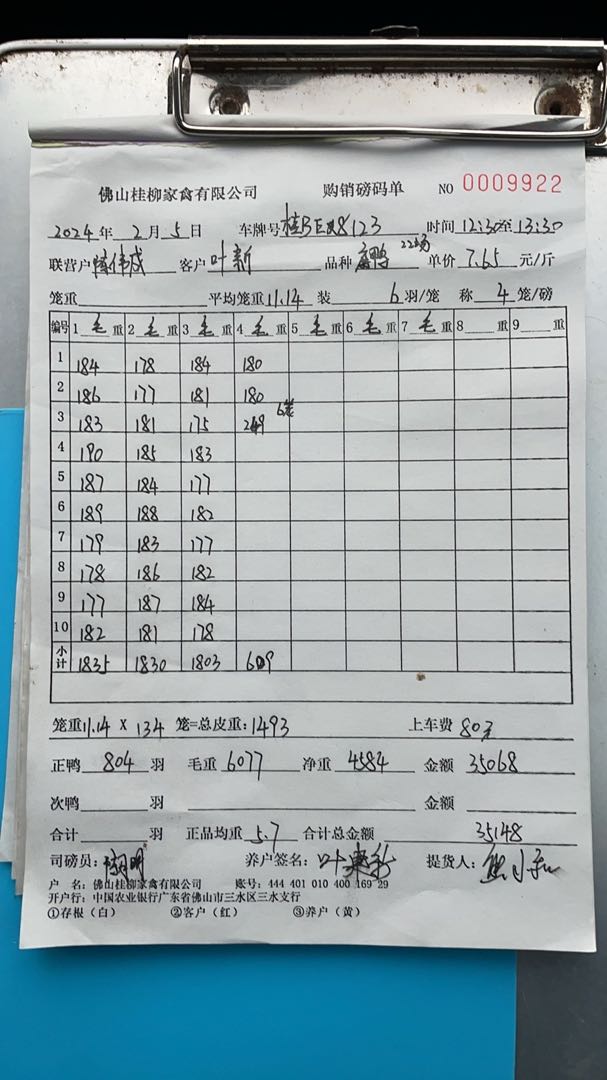 佛山桂柳家禽有限公司 购销磅码单 NO 0009922
2024年 2月 5日 车牌号 桂 8123 时间 12:30至13:30
联营户 伟成 客户 叶新 品种 鸭 单价 7.65 元/斤
笼重 平均笼重 11.14 装 6 羽/笼 称 4 笼/磅
编号 1 毛 重 2 毛 重 3 毛 重 4 毛 重 5 毛 重 6 毛 重 7 毛 重 8 重 9 重
1 184 178 184 180
2 186 177 181 180
3 183 181 175 249 6笼
4 190 185 183
5 187 184 177
6 189 188 182
7 179 183 177
8 178 186 182
9 177 187 184
10 182 181 178
小计 1835 1830 1803 609
笼重 11.14 X 134 笼=总皮重: 1493 上车费 80元
正鸭 804 羽 毛重 6077 净重 4584 金额 35068
次鸭 羽 金额
合计 羽 正品均重 5.7 合计总金额 35148
司磅员: 明 养户签名: 叶 新 提货人: 熊小
户 名: 佛山桂柳家禽有限公司 账号: 444 401 010 400 169 29
开户行: 中国农业银行广东省佛山市三水区三水支行
①存根（白） ②客户（红） ③养户（黄）